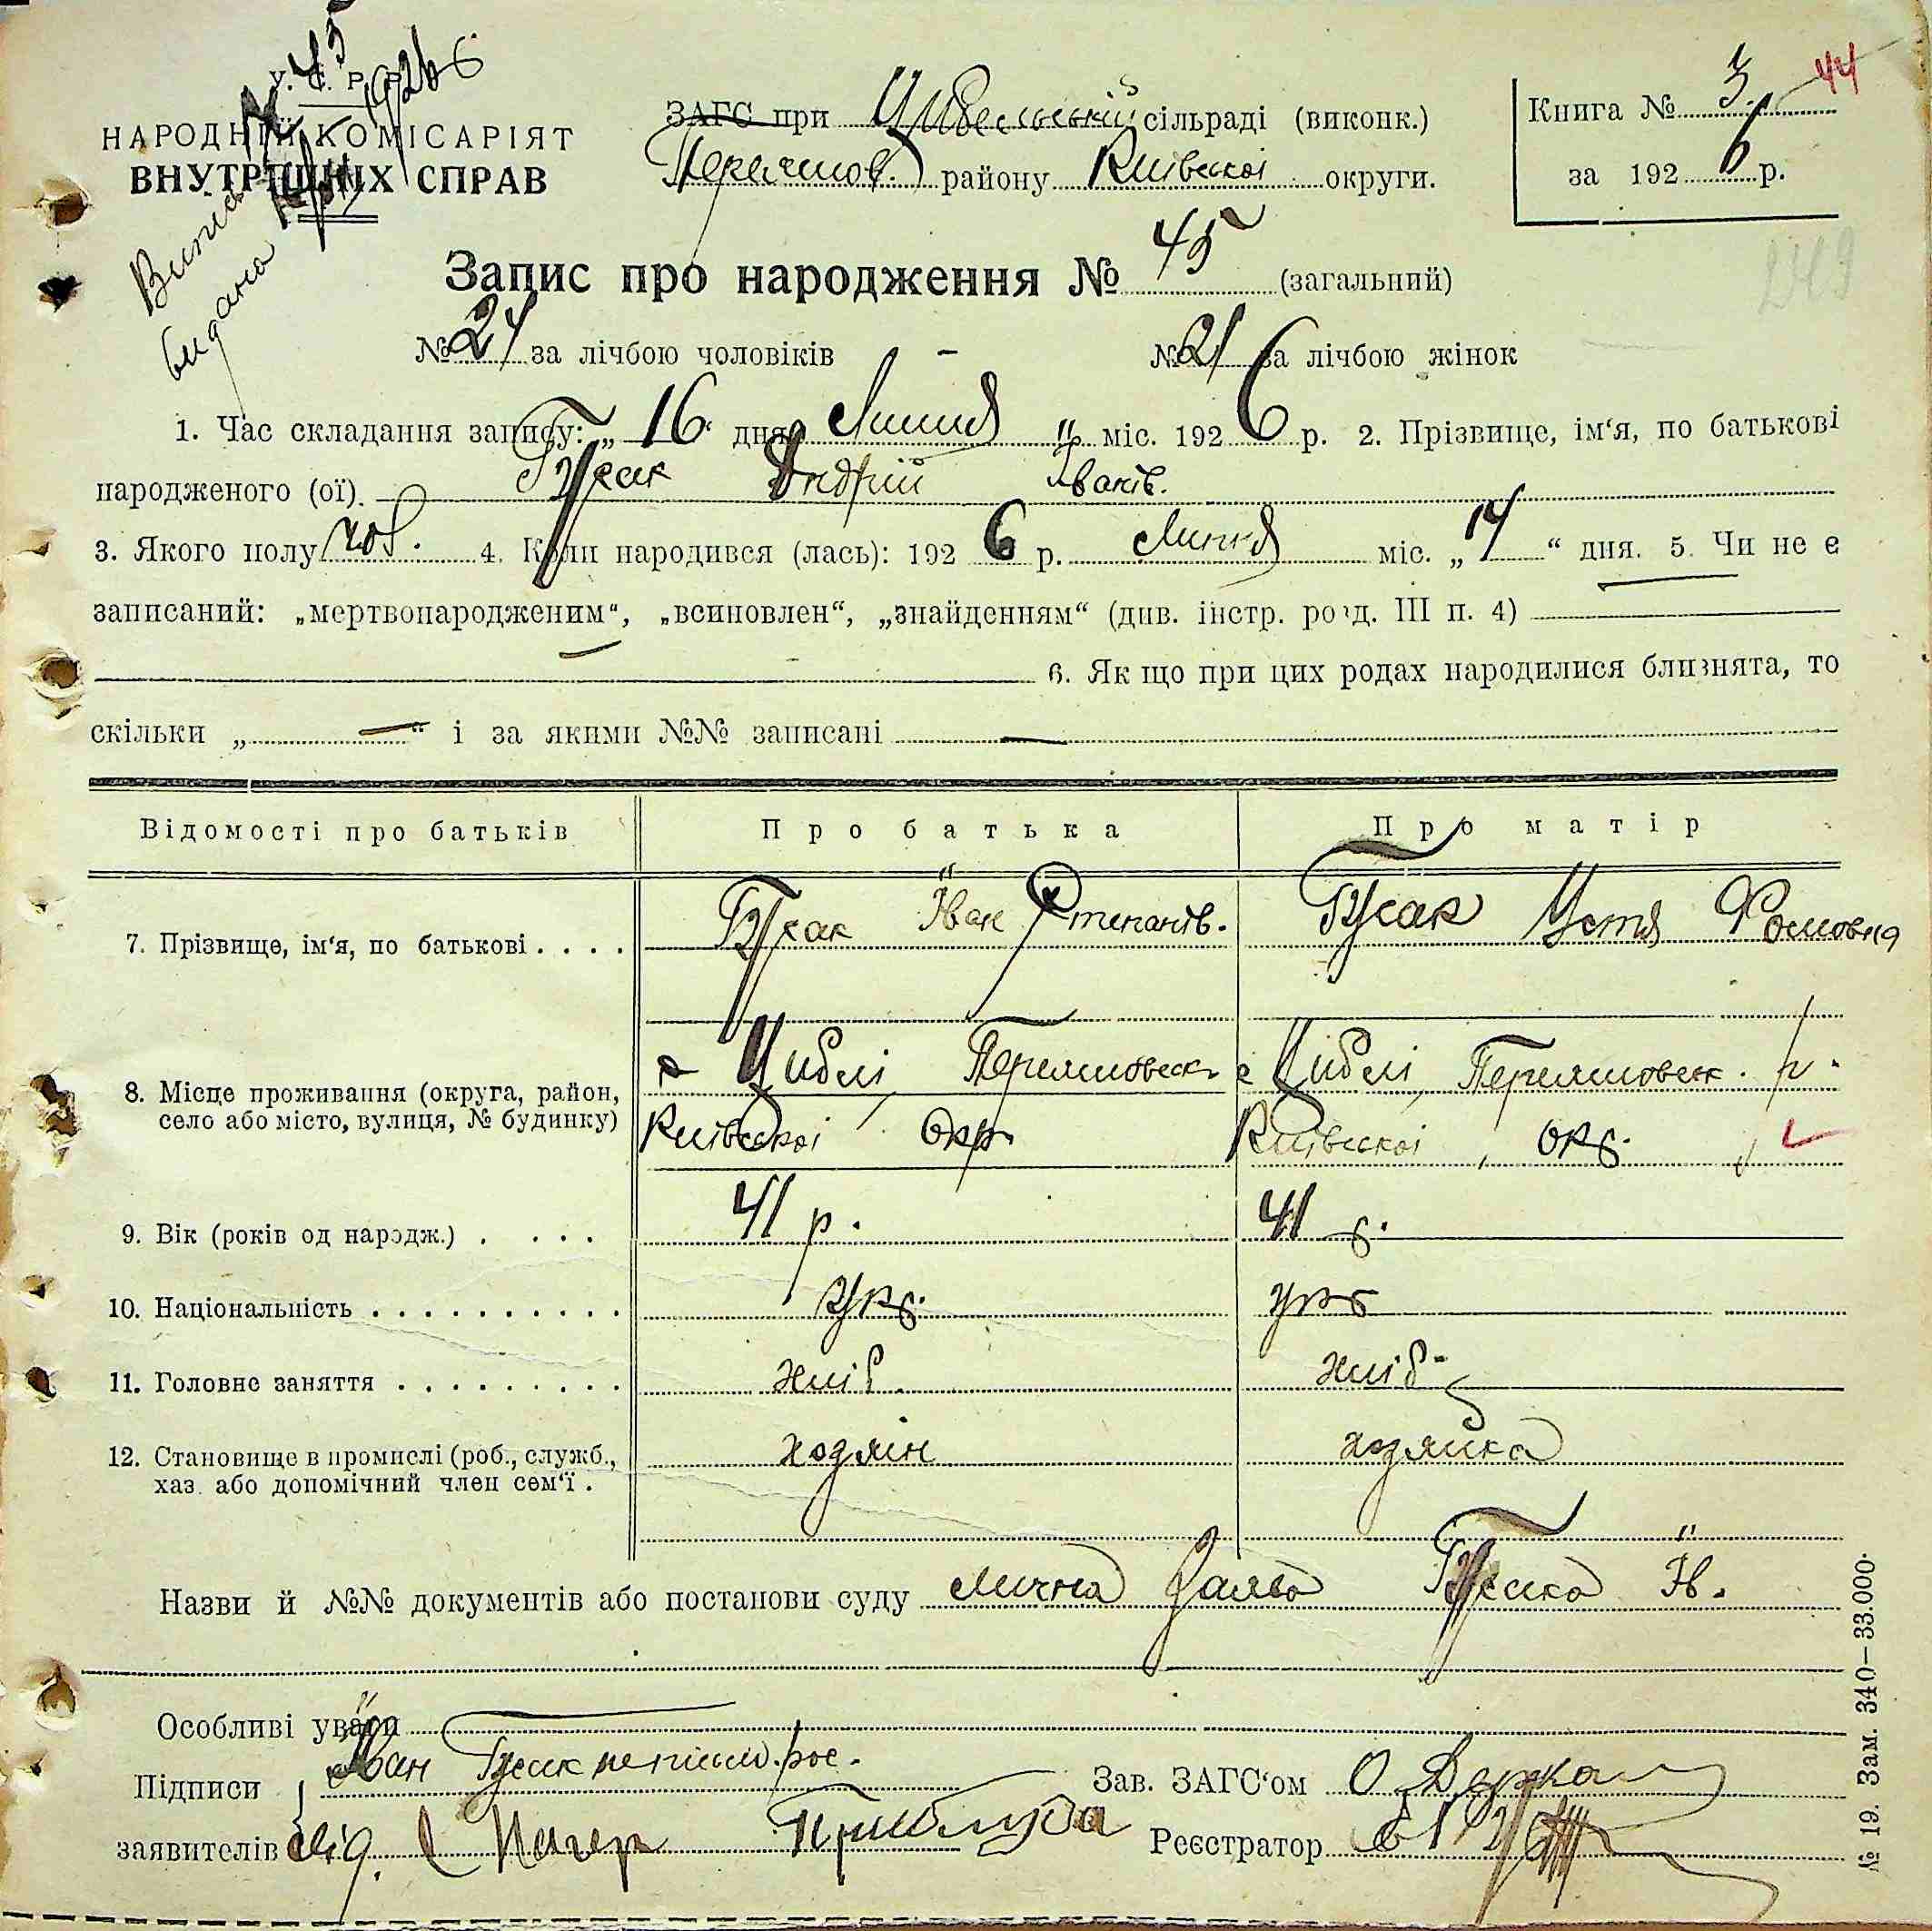 У. С. Р. Р.
НАРОДНІЙ КОМІСАРІЯТ
ВНУТРІШНІХ СПРАВ
№ 45
1926
видана
ЗАГС при Цибельській сільраді (виконк.)
району Київської округи.
Книга № 3
44
за 1926 р.
Запис про народження № 45 (загальний)
249
№ 24 за лічбою чоловіків — № 21 за лічбою жінок
1. Час складання запису: „16“ дня Липня міс. 1926 р. 2. Прізвище, ім‘я, по батькові
народженого (ої). Гусак Андрій Іванів.
3. Якого полу чол. 4. Коли народився (лась): 1926 р. Липня міс. „14“ дня. 5. Чи не є
записаний: „мертвонародженим“, „всиновлен“, „знайденням“ (див. інстр. розд. III п. 4)
— 6. Як що при цих родах народилися близнята, то
скільки „ — “ і за якими №№ записані —
Відомості про батьків Про батька Про матір
7. Прізвище, ім‘я, по батькові . . . . Гусак Іван Степанів. Гусак Устя Фомовна
8. Місце проживання (округа, район, Циблі, с Циблі,
село або місто, вулиця, № будинку) Київської Окр. Київської окр.
9. Вік (років од народж.) . . . . 41 р. 41 р.
10. Національність . . . . . . . . . . Укр. укр
11. Головне заняття . . . . . . . . . хліб. хліб
12. Становище в промислі (роб., служб., хозяїн хозяйка
хаз. або допомічний член сем‘ї .
Назви й №№ документів або постанови суду лична заява Гусака Ів.
Особливі уваги
Підписи Іван Гусак
заявителів
Зав. ЗАГС‘ом
Реєстратор
№ 19. Зам. 340—33.000.